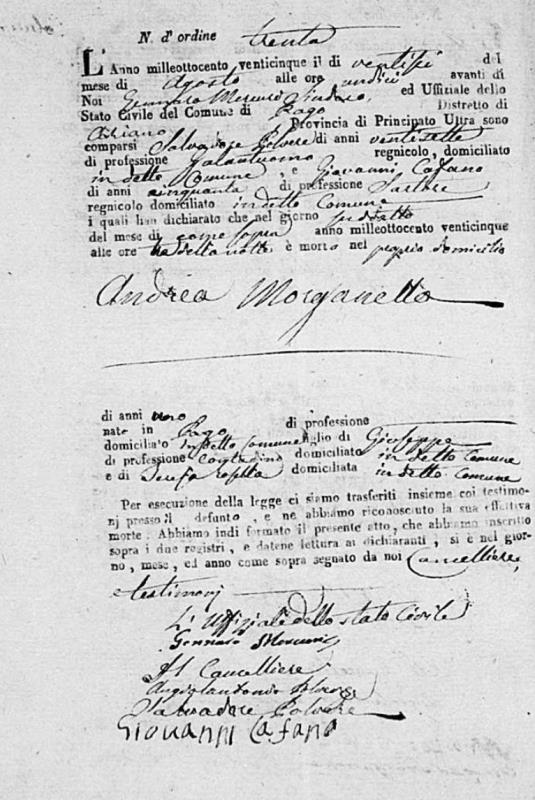 N. d'ordine trenta
L'Anno milleottocento venticinque il di ventisei del
mese di Agosto alle ore undici avanti di
Noi Gennaro Mercuro Sindaco, ed Uffiziale dello
Stato Civile del Comune di Pago Distretto di
Ariano Provincia di Principato Ultra sono
comparsi Salvadore Polvere di anni ventisette
di professione Galantuomo regnicolo, domiciliato
in detto Comune, e Giovanni Cafano
di anni cinquanta di professione Sartore
regnicolo domiciliato in detto Comune
i quali han dichiarato che nel giorno sudetto
del mese di come sopra anno milleottocento venticinque
alle ore tre della notte è morto nel proprio domicilio
Andrea Morganella
di anni uno
nato in Pago di professione
domiciliato in detto Comune figlio di Giuseppe
di professione Contadino domiciliato in detto Comune
e di domiciliata in detto Comune
Per esecuzione della legge ci siamo trasferiti insieme coi testimo-
nj presso il defunto, e ne abbiamo riconosciuto la sua effettiva
morte. Abbiamo indi formato il presente atto, che abbiamo inscritto
sopra i due registri, e datene lettura ai dichiaranti, si è nel gior-
no, mese, ed anno come sopra segnato da noi Cancelliere,
e testimonj
L'Uffiziale dello stato Civile
Gennaro Mercuro
Il Cancelliere
Angelantonio Polvere
Salvadore Polvere
Giovanni Cafano